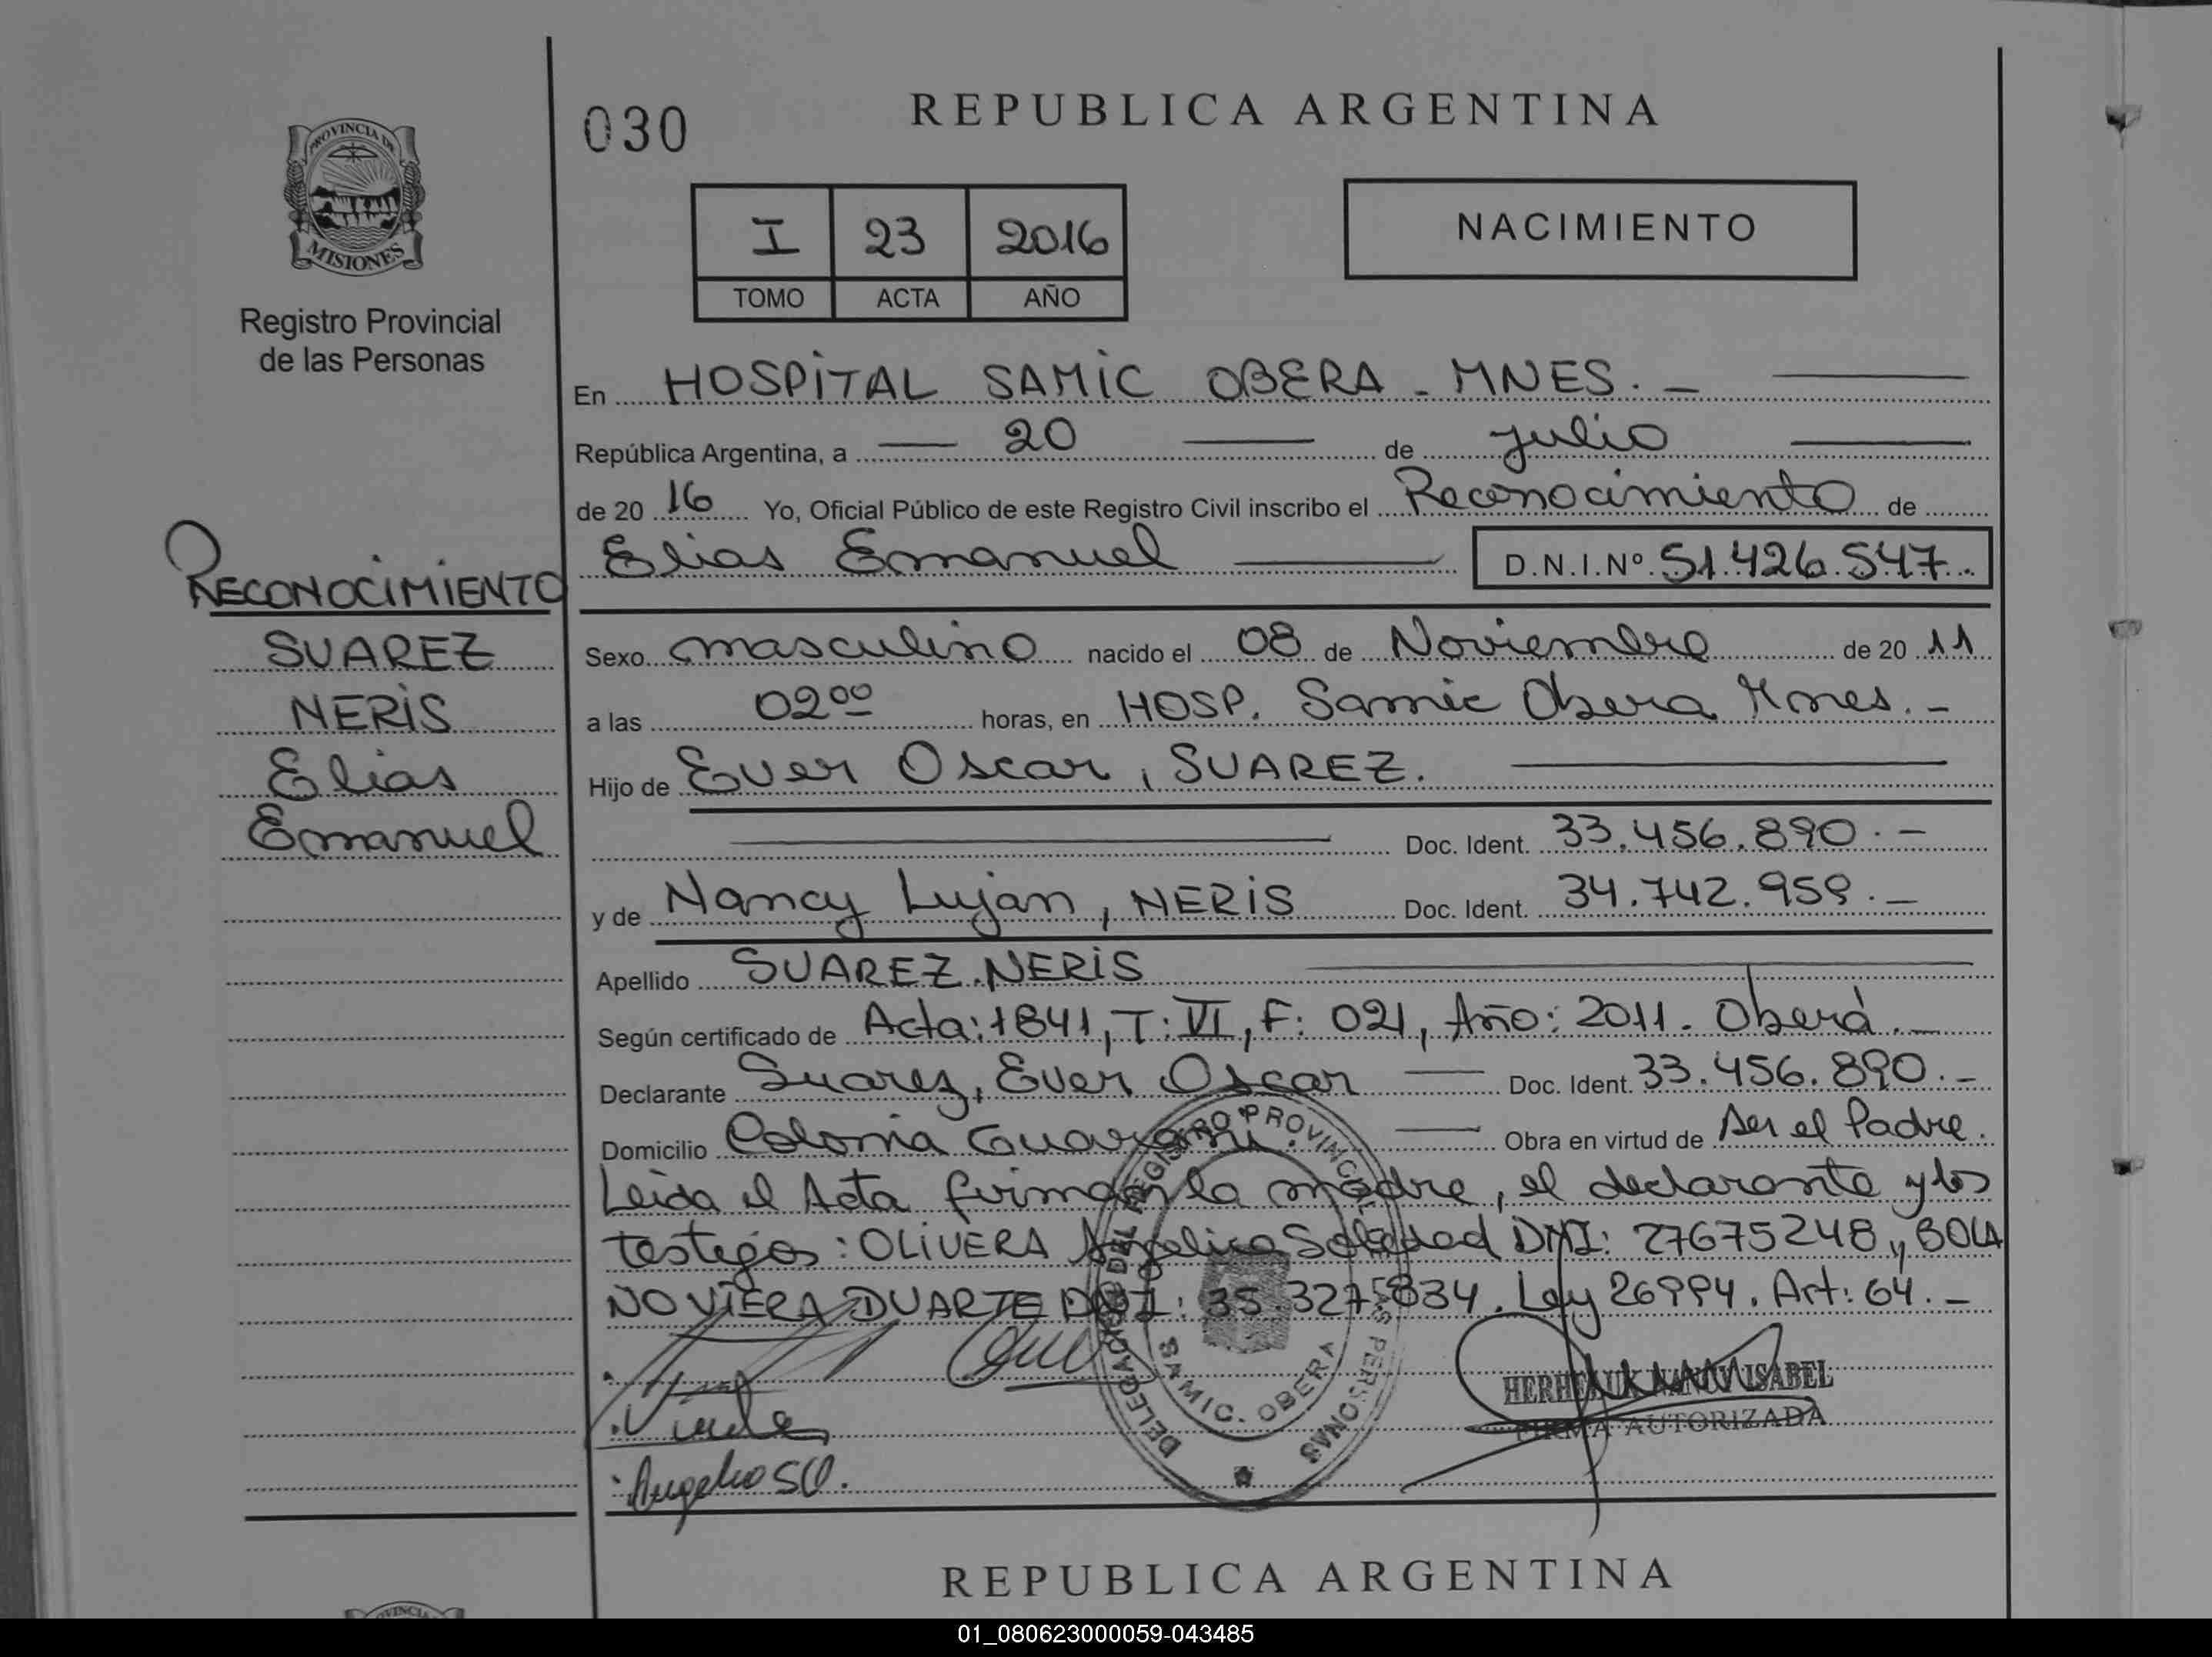 030
REPUBLICA ARGENTINA
PROVINCIA DE
MISIONES
Registro Provincial
de las Personas
I 23 2016
TOMO ACTA AÑO
NACIMIENTO
En HOSPITAL SAMIC OBERA - MNES. -
República Argentina, a — 20 — de julio
de 20 16 Yo, Oficial Público de este Registro Civil inscribo el Reconocimiento de
Elias Emanuel — D.N.I.Nº 51.426.547.
RECONOCIMIENTO
SUAREZ
NERIS
Elias
Emanuel
Sexo masculino nacido el 08 de Noviembre de 20 11
a las 02⁰⁰ horas, en HOSP. Samic Obera Mnes. -
Hijo de Ever Oscar, SUAREZ.
Doc. Ident. 33.456.890. -
y de Nancy Lujan, NERIS Doc. Ident. 34.742.959. -
Apellido SUAREZ NERIS
Según certificado de Acta: 1841, T: VI, F: 021, Año: 2011. Oberá. -
Declarante Suarez, Ever Oscar — Doc. Ident. 33.456.890. -
Domicilio Colonia Guarani. — Obra en virtud de Ser el Padre.
Leida el Acta firman la madre, el declarante y los
testigos: OLIVERA Angelica Soledad DNI: 27675248 y BOLA
NO VIERA DUARTE DNI: 35.327.834. Ley 26994. Art: 64. -
DELEGACION DEL REGISTRO PROVINCIAL DE LAS PERSONAS
SAMIC. OBERA
ISABEL
FIRMA AUTORIZADA
REPUBLICA ARGENTINA
01_080623000059-043485